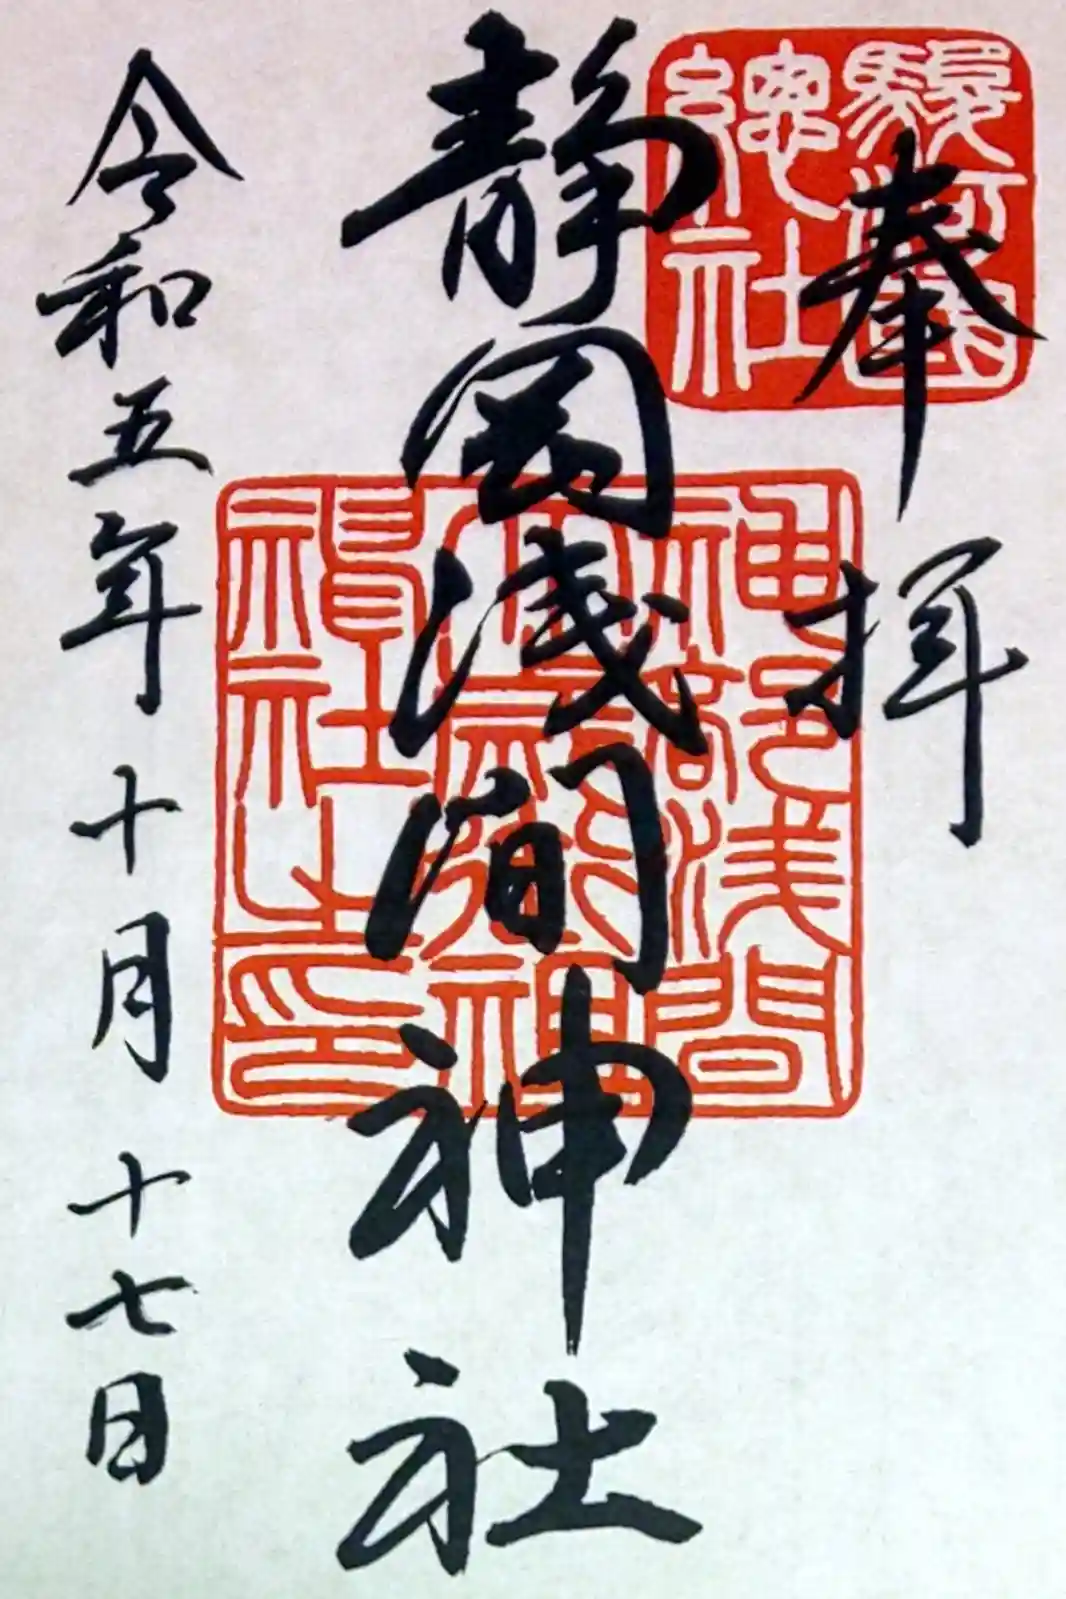 奉拝
駿河國
總社
静岡浅間神社
神部浅間
大歳御祖神
社之印
令和五年十月十七日